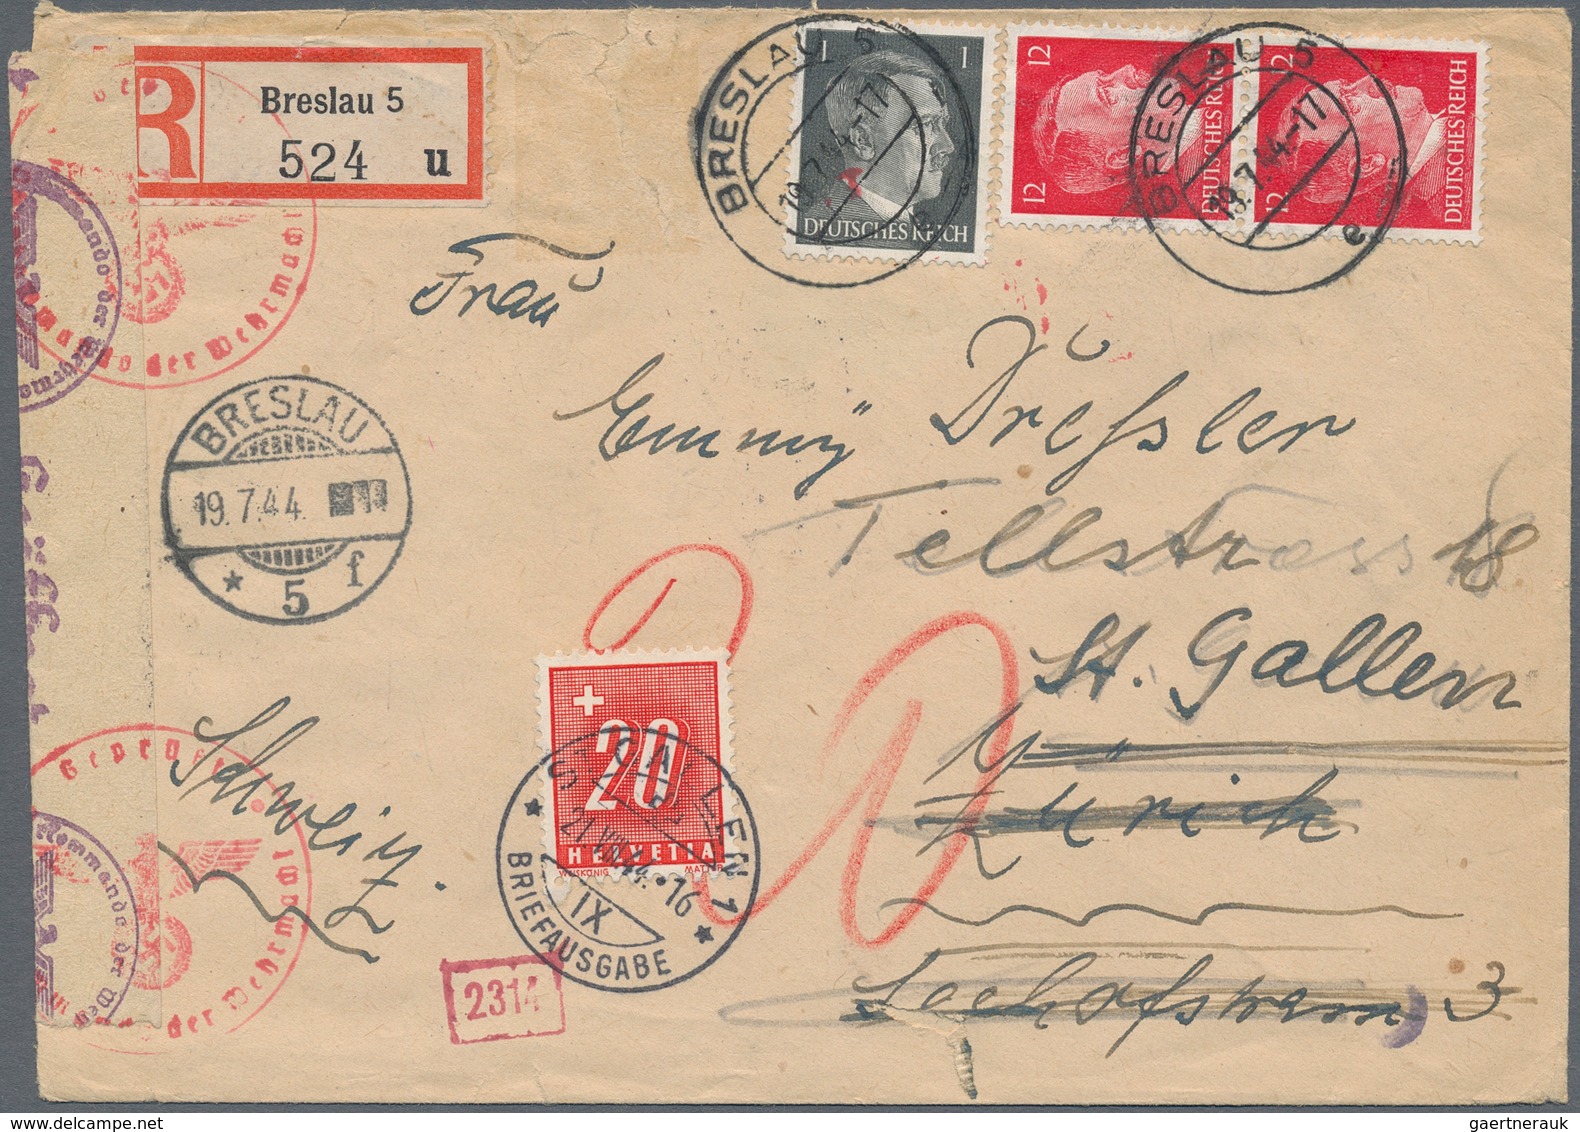 Breslau 5
524 u
R
BRESLAU 5
19.7.44-17
e
1 1
DEUTSCHES REICH
12 12
DEUTSCHES REICH
BRESLAU 5
19.7.44-17
e
12 12
DEUTSCHES REICH
Kommando der Wehrmacht
Frau
Emmy Dreßler
Tellstrasse 18
St. Gallen
Zürich
3
BRESLAU
19.7.44
5 f
Schweiz.
20
HELVETIA
WEISKÖNIG
ST. GALLEN 1
21.VII.44.-16
IX
BRIEFAUSGABE
Geprüft
Kommando der
der Wehrmacht
2314
gaertnerauk